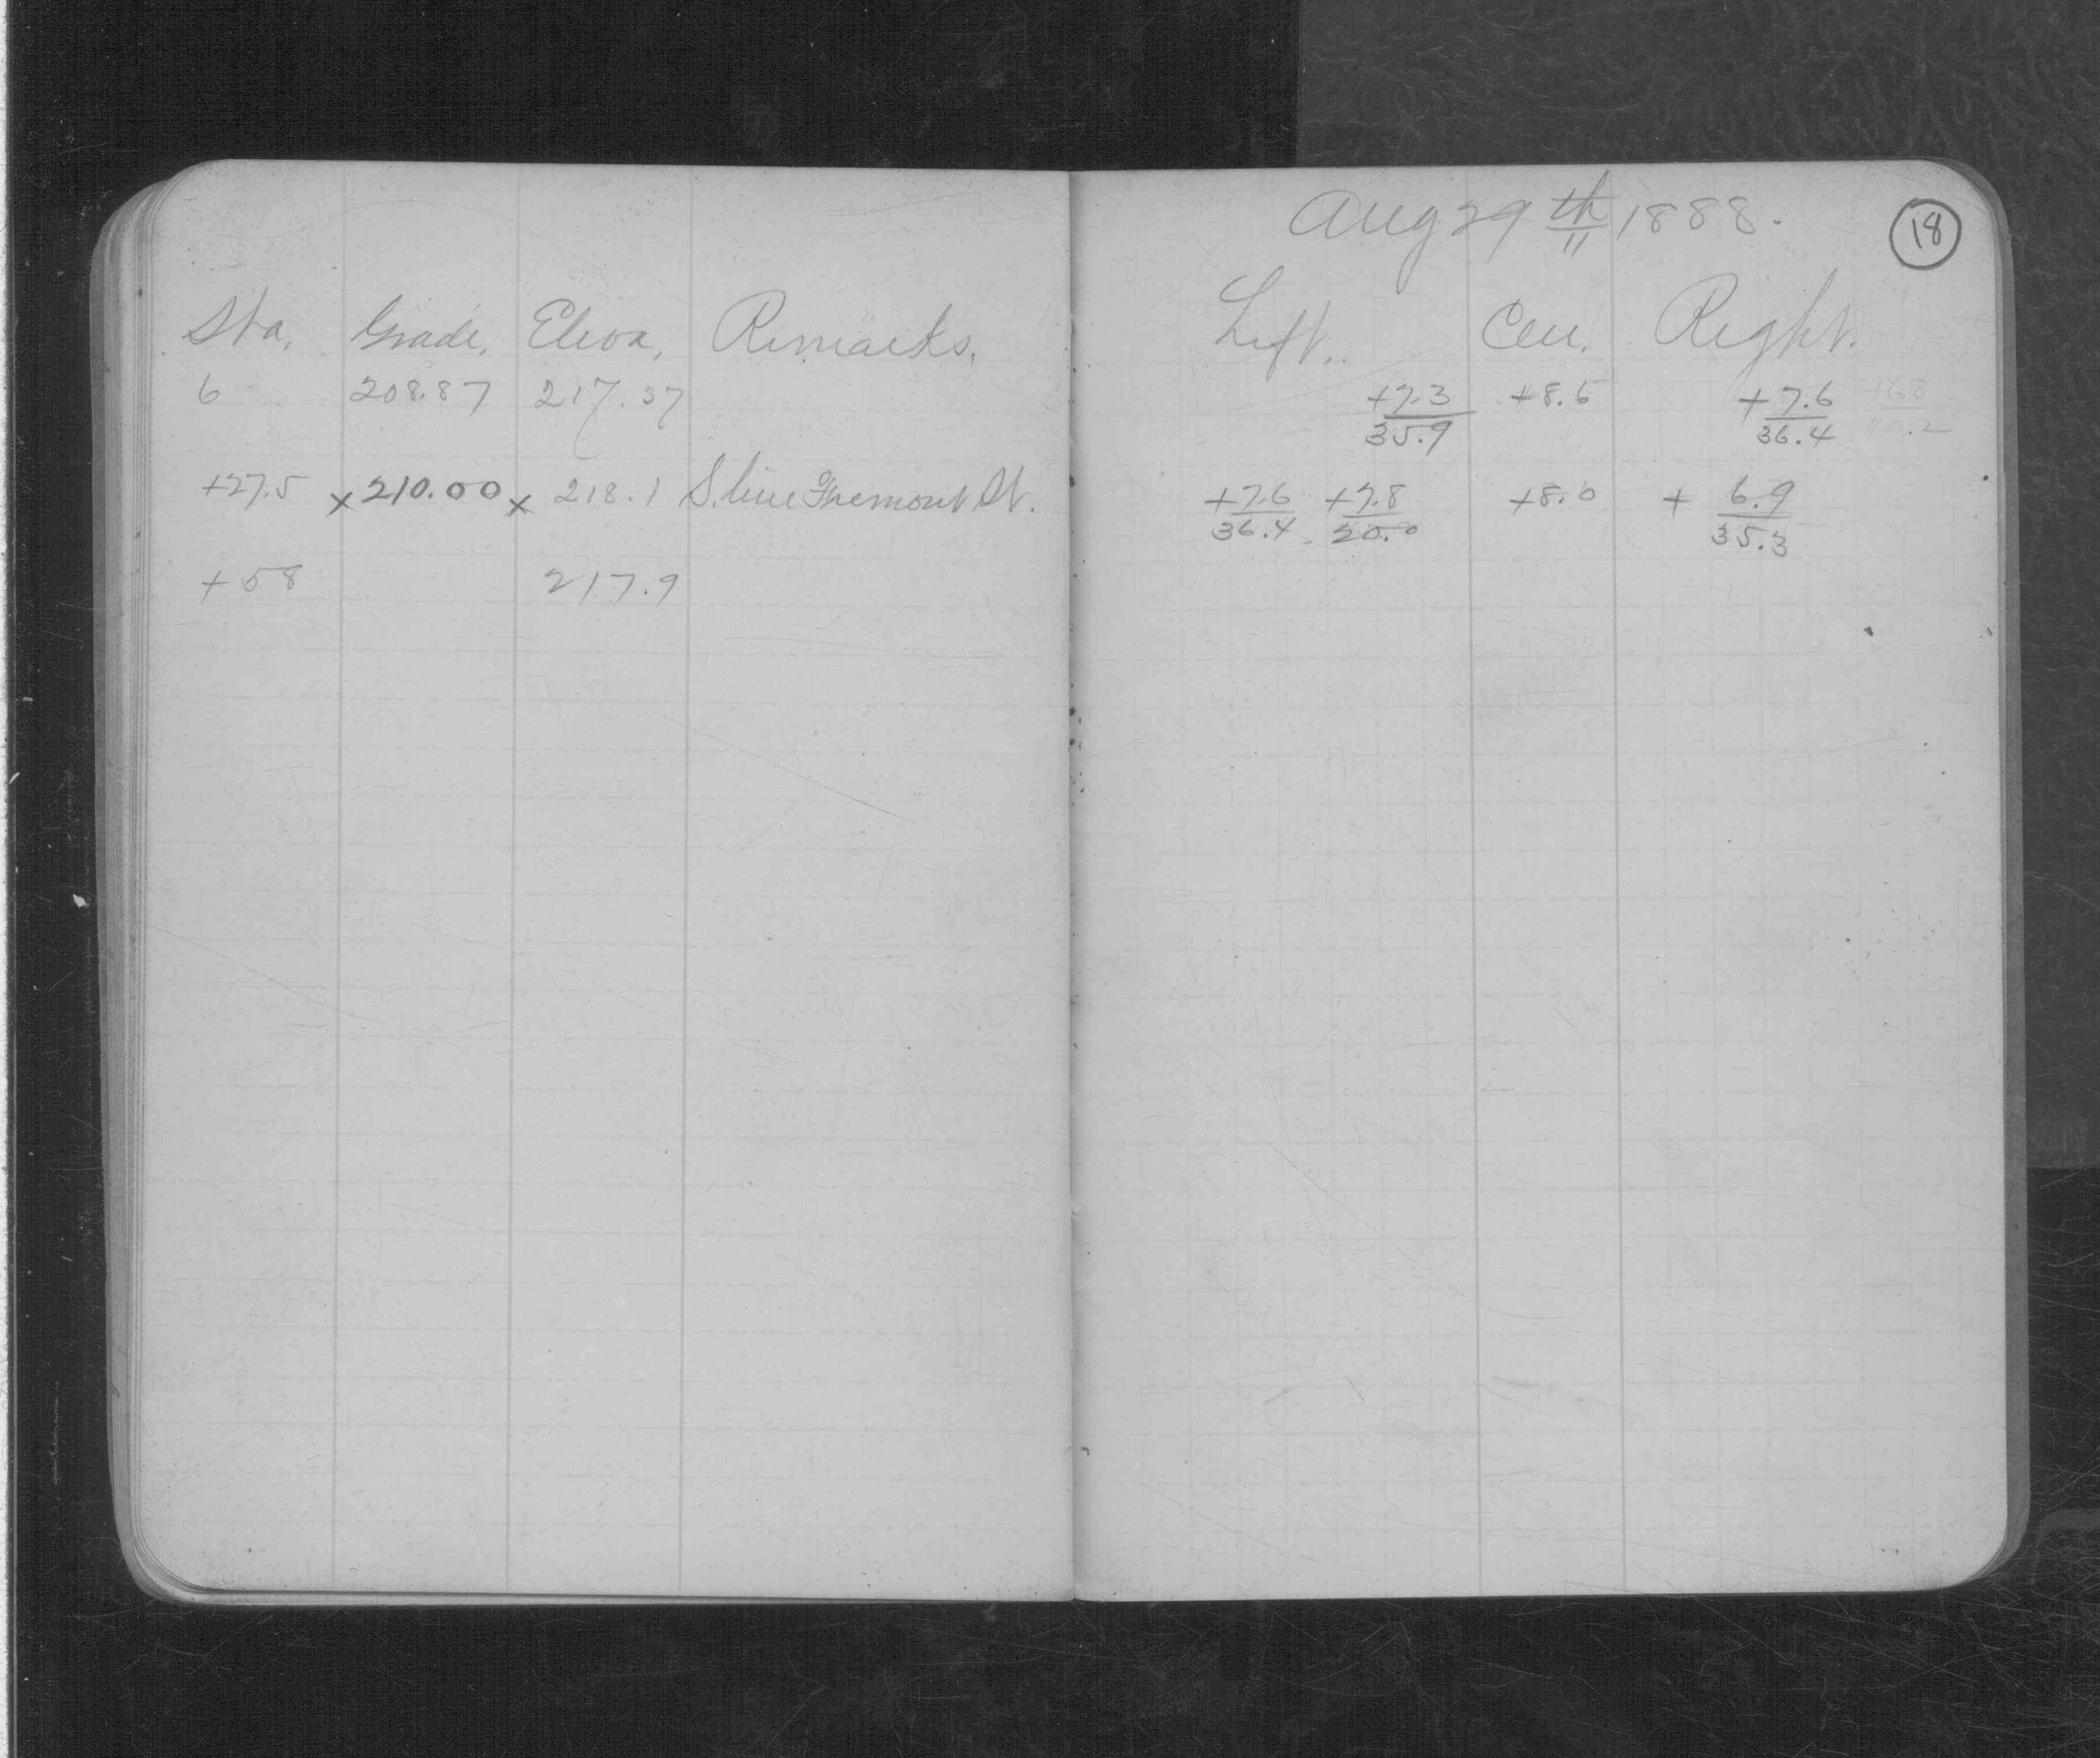 Aug 29th 1888. 18
Sta. Grade. Eleva. Remarks. Left. Cen. Right.
6 208.87 217.37 +7.3/35.9 +8.5 +7.6/36.4
+27.5 x 210.00 x 218.1 S. line Fremont St. +7.6/36.4 +7.8/20.0 +8.0 + 6.9/35.3
+58 217.9